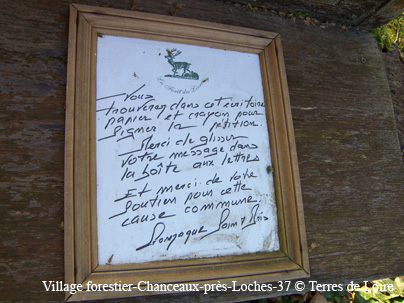 Vous
trouverez dans cet écritoire
papier et crayon pour
signer la pétition.
Merci de glisser
votre message dans
la boîte aux lettres
Et merci de votre
soutien pour cette
cause commune.
Gonzague Saint Bris
Village forestier-Chanceaux-près-Loches-37 © Terres de Loire